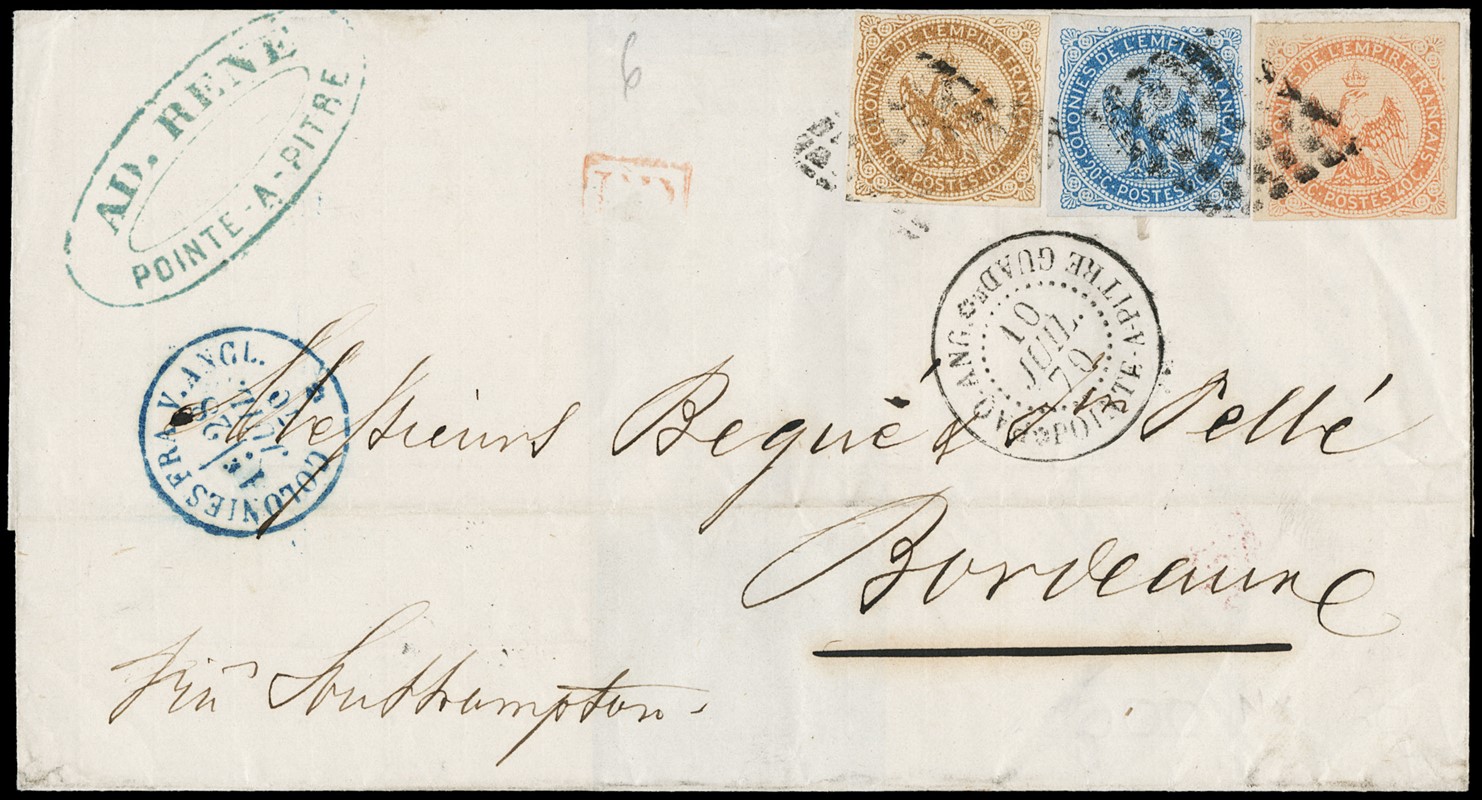 AD. RENE
POINTE-A-PITRE
6
COLONIES DE L'EMPIRE FRANÇAIS
10 C. POSTES 10 C.
COLONIES DE L'EMPIRE FRANÇAIS
20 C. POSTES 20 C.
COLONIES DE L'EMPIRE FRANÇAIS
40 C. POSTES 40 C.
PAQ. ANG. POINTE-A-PITRE GUAD
10
JUIL.
70
COLONIES FRA. V. ANGL.
28
JUIL.
70
Messieurs Begué & Pellé
Bordeaux
via Southampton